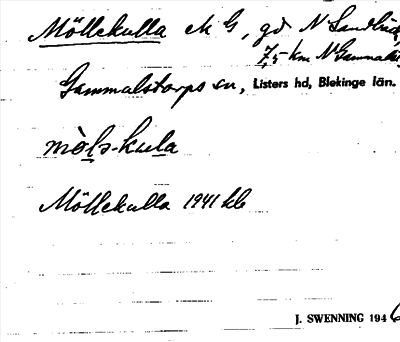 Möllekulla ek G, gd N Sandbäck,
7,5 km N Gammalst
Gammalstorps sn, Listers hd, Blekinge län.
mö̀lə-kula
Möllekulla 1941 kb
J. SWENNING 1946